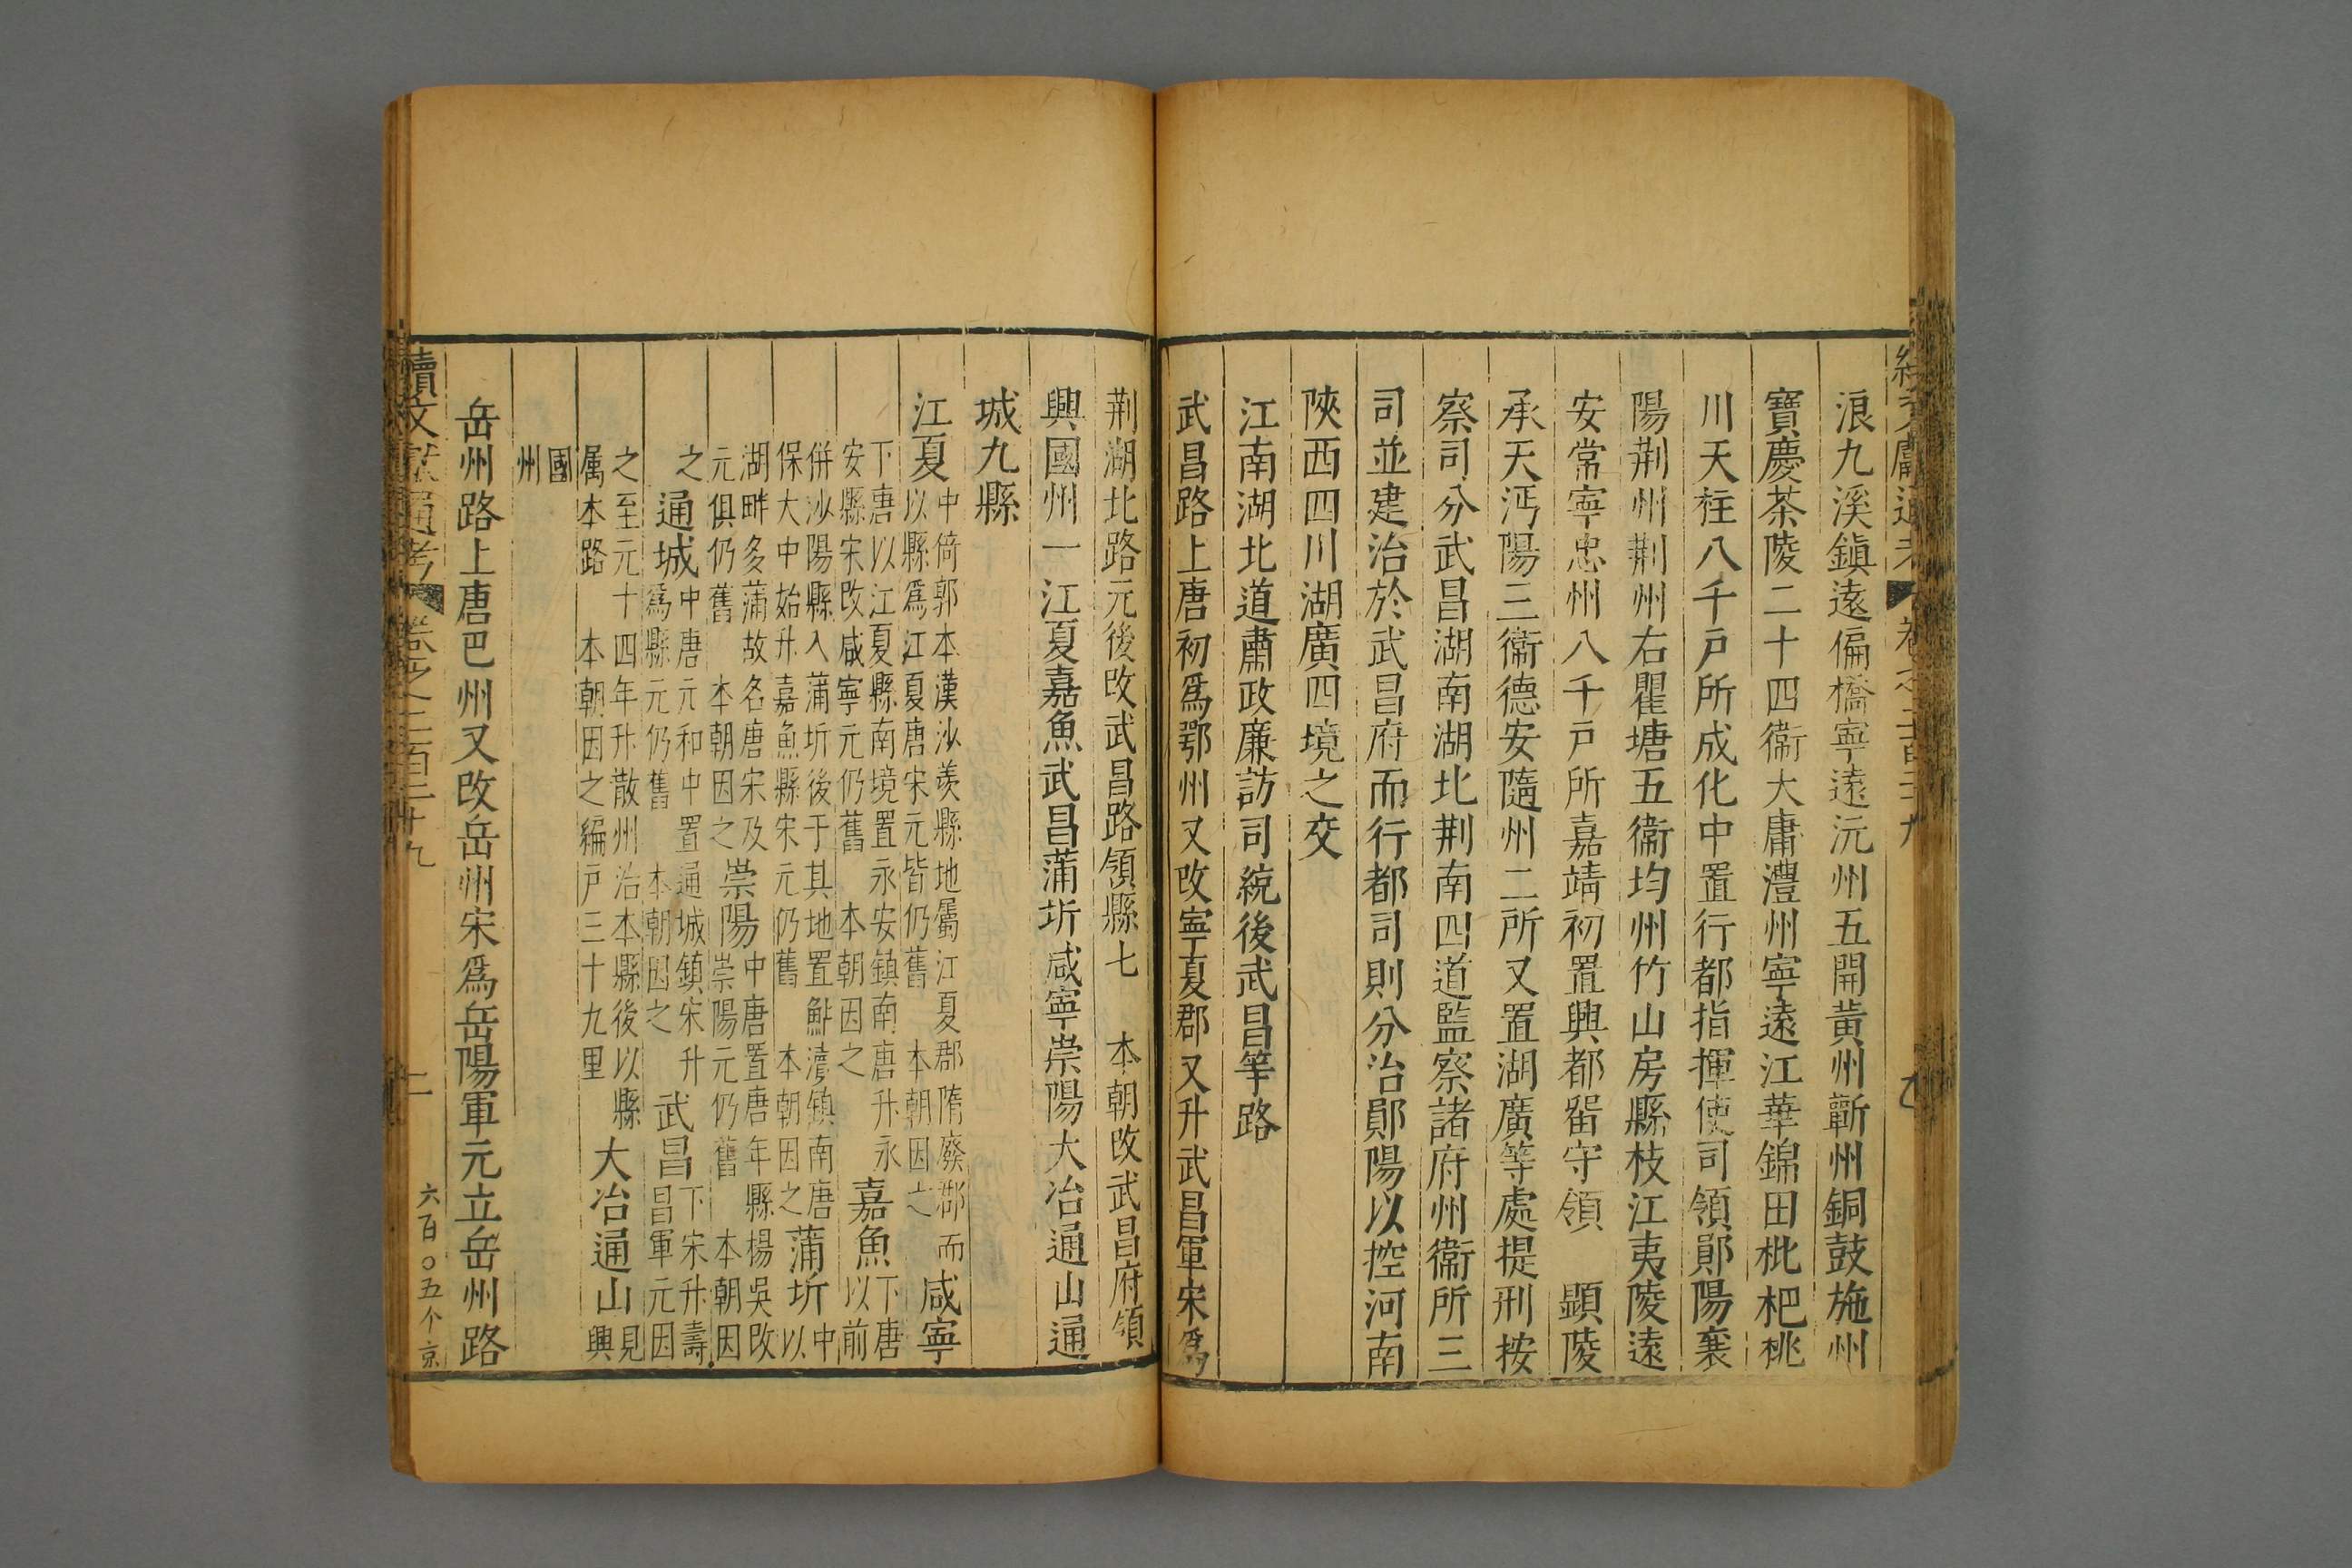 浪九溪鎮遠偏橋寧遠沅州五開黃州蘄州銅鼓施州
寶慶茶陵二十四衞大庸澧州寧遠江華錦田枇杷桃
川天柱八千戸所成化中置行都指揮使司領鄖陽襄
陽荆州荆州右瞿塘五衞均州竹山房縣枝江夷陵遠
安常寧忠州八千戸所嘉靖初置興都畱守領　顯陵
承天沔陽三衞德安隨州二所又置湖廣等處提刑按
察司分武昌湖南湖北荆南四道監察諸府州衞所三
司並建治於武昌府而行都司則分治鄖陽以控河南
陝西四川湖廣四境之交
江南湖北道肅政廉訪司統後武昌等路
武昌路上唐初爲鄂州又改寧夏郡又升武昌軍宋爲
荆湖北路元後改武昌路領縣七　本朝改武昌府領
興國州一江夏嘉魚武昌蒲圻咸寧崇陽大冶通山通
城九縣
江夏
中倚郭本漢沙羨縣地屬江夏郡隋廢郡而
以縣爲江夏唐宋元皆仍舊　本朝因之
咸寧
下唐以江夏縣南境置永安鎮南唐升永
安縣宋改咸寧元仍舊　本朝因之
嘉魚
下唐
以前
併沙陽縣入蒲圻後于其地置鮎瀆鎮南唐
保大中始升嘉魚縣宋元仍舊　本朝因之
蒲圻
中
以
湖畔多蒲故名唐宋及
元俱仍舊　本朝因之
崇陽
中唐置唐年縣楊吳改
崇陽元仍舊　本朝因
之
通城
中唐元和中置通城鎮宋升
爲縣元仍舊　本朝因之
武昌
下宋升壽
昌軍元因
之至元十四年升散州治本縣後以縣
属本路　本朝因之編戸三十九里
大冶通山
見
興
國
州
岳州路上唐巴州又改岳州宋爲岳陽軍元立岳州路
續文獻通考
卷之二百二十九
二
六百〇五个
京